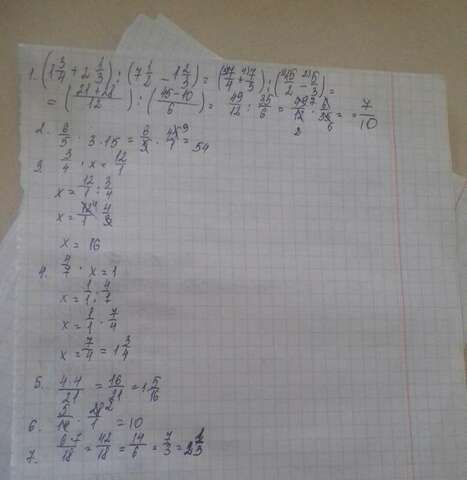 1. (1 3/4 + 2 1/3) : (7 1/2 - 1 2/3) = (7/4 + 7/3) : (15/2 - 5/3) =
= (21+28/12) : (45-10/6) = 49/12 : 35/6 = 49/12 · 6/35 = 7/10
2. 6/5 · 3·15 = 6/5 · 45/1 = 54
3. 3/4 · x = 12/1
x = 12/1 : 3/4
x = 12/1 · 4/3
x = 16
4. 4/7 · x = 1
x = 1/1 : 4/7
x = 1/1 · 7/4
x = 7/4 = 1 3/4
5. 4·4/21 = 16/21 = 1 5/16
6. 5/18 · /1 = 10
7. 6·7/18 = 42/18 = 14/6 = 7/3 = 2 1/3